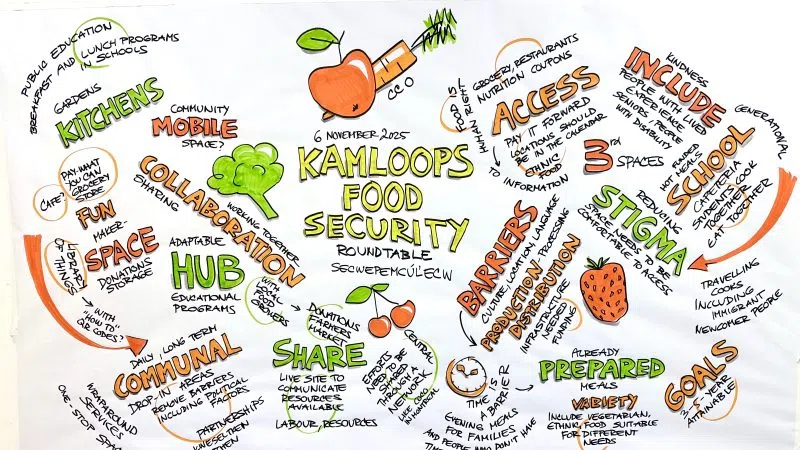 PUBLIC EDUCATION
BREAKFAST AND LUNCH PROGRAMS
IN SCHOOLS
GARDENS
KITCHENS
COMMUNITY
MOBILE
SPACE?
PAY-WHAT
YOU CAN
GROCERY
STORE
CAFE
FUN
MAKER-
SPACE
DONATIONS
STORAGE
LIBRARY
OF THINGS
→ WITH
"HOW TO"
QR CODES?
COLLABORATION
SHARING
WORKING TOGETHER
ADAPTABLE
HUB
EDUCATIONAL
PROGRAMS
WITH
LOCAL
FOOD
→ DONATIONS
FARMERS
MARKET
DAILY, LONG TERM
COMMUNAL
DROP-IN AREAS
REMOVE BARRIERS
INCLUDING POLITICAL
FACTORS
WRAPAROUND
SERVICES
ONE STOP
PARTNERSHIPS
6 NOVEMBER, 2025
KAMLOOPS
FOOD
SECURITY
ROUNDTABLE
SECWEPEMCÚL'ECW
SHARE
LIVE SITE TO
COMMUNICATE
RESOURCES
AVAILABLE
LABOUR, RESOURCES
CENTRAL
EFFORTS
NEED TO BE
SHARED
THROUGH A
NETWORK
FOOD IS
HUMAN RIGHT
GROCERY, RESTAURANTS
NUTRITION COUPONS
ACCESS
PAY IT FORWARD
LOCATIONS SHOULD
BE IN THE CALENDAR
ETHNIC
FOOD
TO
INFORMATION
3RD SPACES
KINDNESS
INCLUDE
PEOPLE WITH LIVED
EXPERIENCE
SENIORS, PEOPLE
WITH DISABILITY
GENERATIONAL
SCHOOL
FUNDED
HOT MEALS
CAFETERIA
STUDENTS COOK
TOGETHER
EAT TOGETHER
REDUCING
STIGMA
SPACE NEEDS TO BE
COMFORTABLE TO ACCESS
TRAVELLING
COOKS
INCLUDING
IMMIGRANT
NEWCOMER PEOPLE
BARRIERS
CULTURE, LOCATION, LANGUAGE
PRODUCTION - PROCESSING
DISTRIBUTION
INFRASTRUCTURE
NEEDS
FUNDING
TIME IS
A BARRIER
EVENING MEALS
FOR FAMILIES
AND PEOPLE WHO DON'T HAVE
TIME
ALREADY
PREPARED
MEALS
VARIETY
INCLUDE VEGETARIAN,
ETHNIC, FOOD SUITABLE
FOR DIFFERENT
NEEDS
GOALS
YEAR
ATTAINABLE